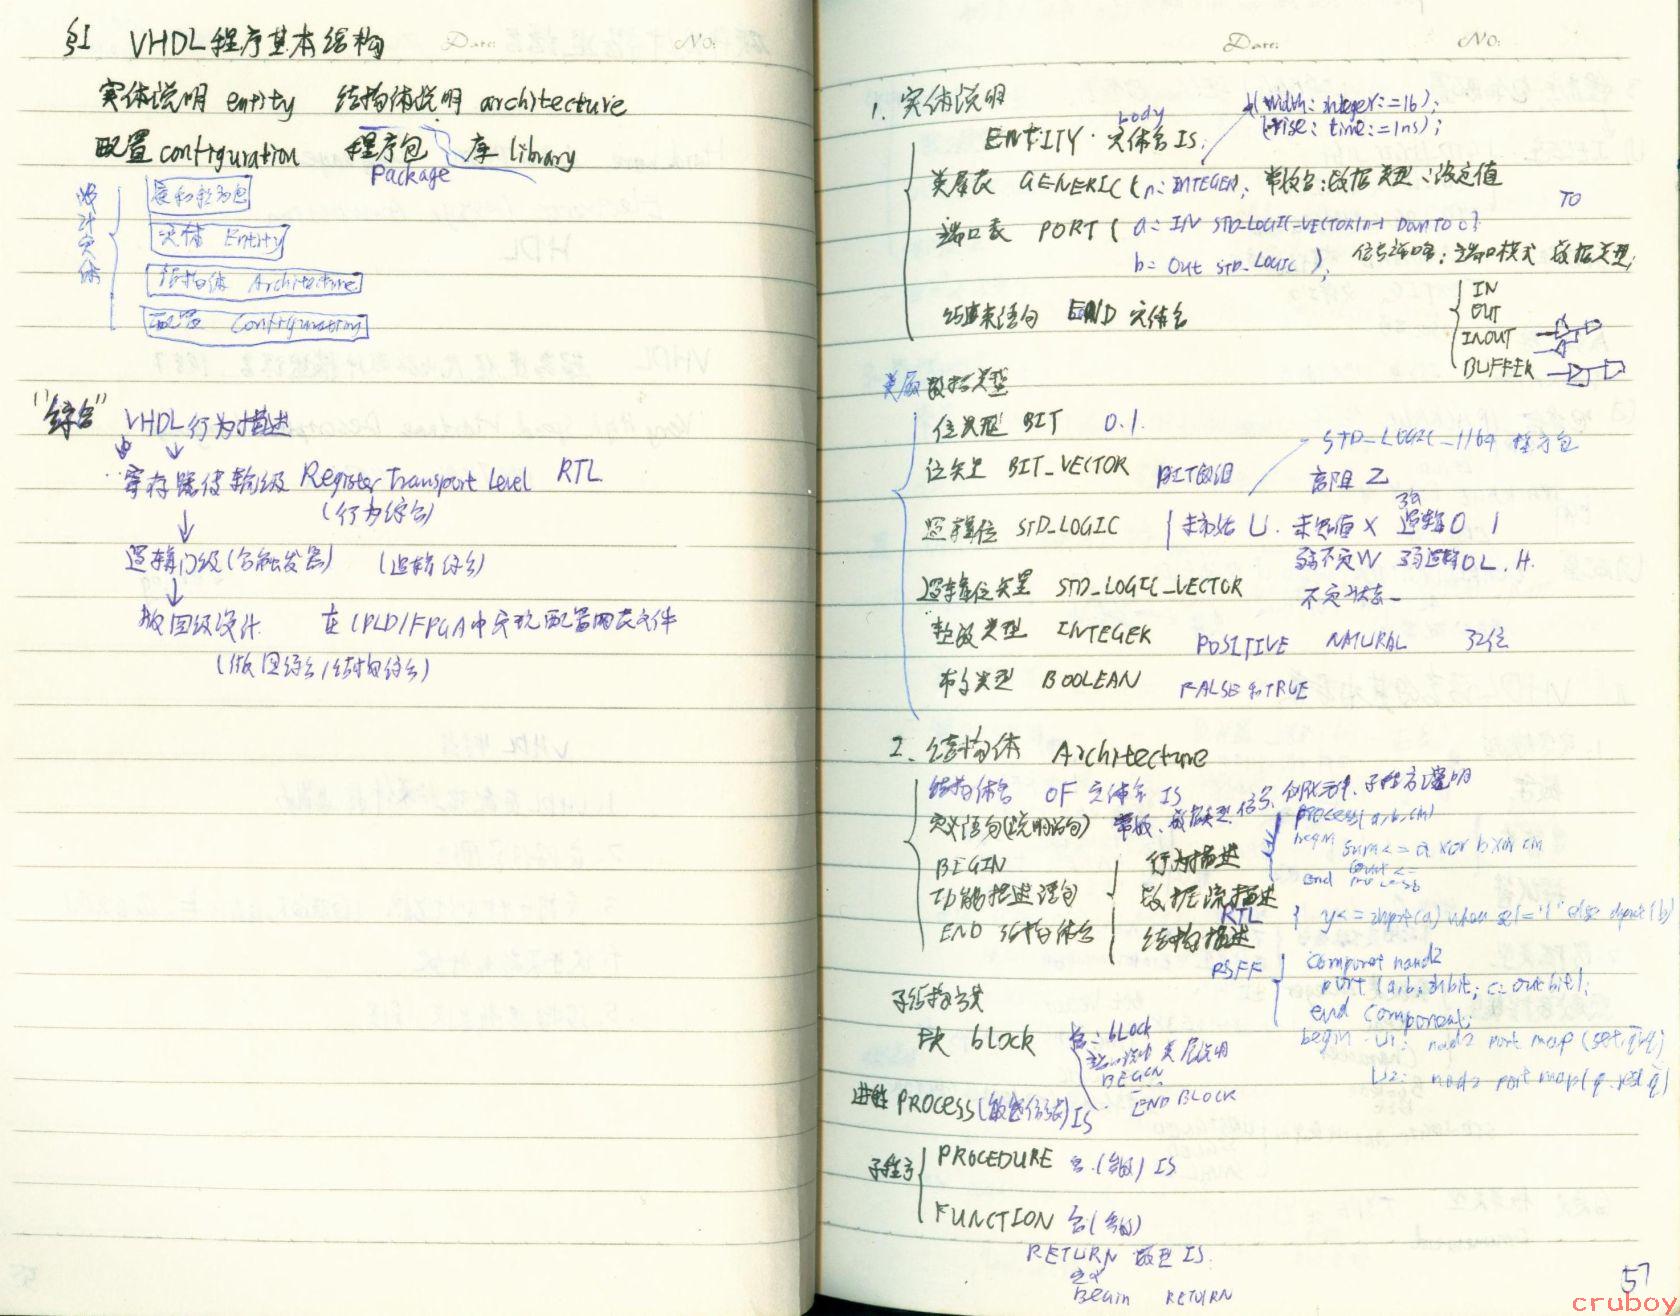 §1 VHDL程序基本结构
Date: No:
实体说明 entity 结构体说明 architecture
配置 configuration 程序包 库 library
Package
设计实体
库和程序包
实体 Entity
结构体 Architecture
配置 Configuration
"综合" VHDL行为描述
寄存器传输级 Register Transport Level RTL
(行为综合)
逻辑门级(含触发器) (逻辑综合)
版图级设计 在CPLD/FPGA中实现配置网表文件
(版图综合/结构综合)
Date: No:
1. 实体说明
body
(width: integer:=16);
(rise: time:=1ns);
ENTITY 实体名 IS
类属表 GENERIC (n: INTEGER); 常数名:数据类型:设定值
TO
端口表 PORT ( a: IN STD_LOGIC_VECTOR(n-1 DownTo 0);
b: Out STD_LOGIC ); 端口模式 数据类型;
结束语句 END 实体名
IN
OUT
INOUT
BUFFER
类属 数据类型
位类型 BIT 0.1.
STD_LOGIC_1164 程序包
位矢量 BIT_VECTOR BIT数组 高阻 Z
逻辑位 STD_LOGIC 未初始 U. 未知值 X 强逻辑0 1
弱不定W 弱逻辑0L.H.
逻辑位矢量 STD_LOGIC_VECTOR 不定状态-
整数类型 INTEGER POSITIVE NATURAL 32位
布尔类型 BOOLEAN FALSE和TRUE
2. 结构体 Architecture
结构体名 OF 实体名 IS
定义语句(说明语句) 常数、数据类型、信号、例化元件、子程序说明
BEGIN 行为描述
process(a,b,cin)
begin
sum<=a xor b xor cin
cout<=
end process
功能描述语句 数据流描述
RTL y<=input(a) when sel='1' else input(b)
END 结构体名 结构描述
RSFF
component nand2
port (a,b: in bit; c: out bit);
end component;
begin U1: nand2 port map (set,
U2: nand2 port map (q,
子结构
块 block 名: block
类属说明
BEGIN
END BLOCK
进程 PROCESS (敏感信号) IS
子程序
PROCEDURE 名(参数) IS
FUNCTION 名(参数)
RETURN 数据类型 IS
定义
Begin RETURN
57
cruboy